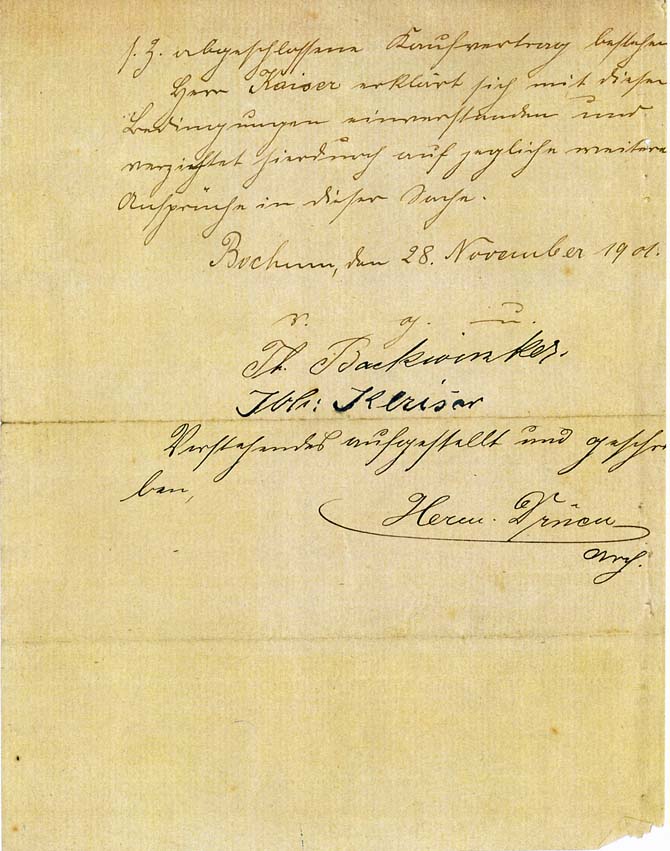 s. Z. abgeschlossene Kaufvertrag bestehen
Herr Kaiser erklärt sich mit diesen
Bedingungen einverstanden und
verzichtet hierdurch auf jegliche weitere
Ansprüche in dieser Sache.
Bochum, den 28. November 1901.
v. g. u.
Th. Backwinkel.
Joh: Kaiser
Vorstehendes aufgestellt und geschrie
ben,
Herm. Drüen
Arch.